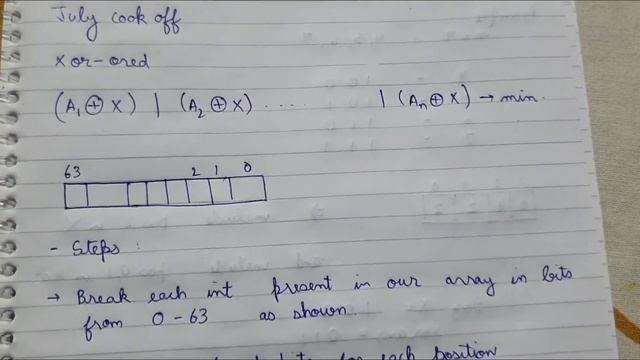 July cook off
Xor-ored
(A₁ ⊕ X) | (A₂ ⊕ X) ..... | (Aₙ ⊕ X) → min.
63 2 1 0
- Steps :
→ Break each int present in our array in bits
from 0 - 63 as shown.
for each position